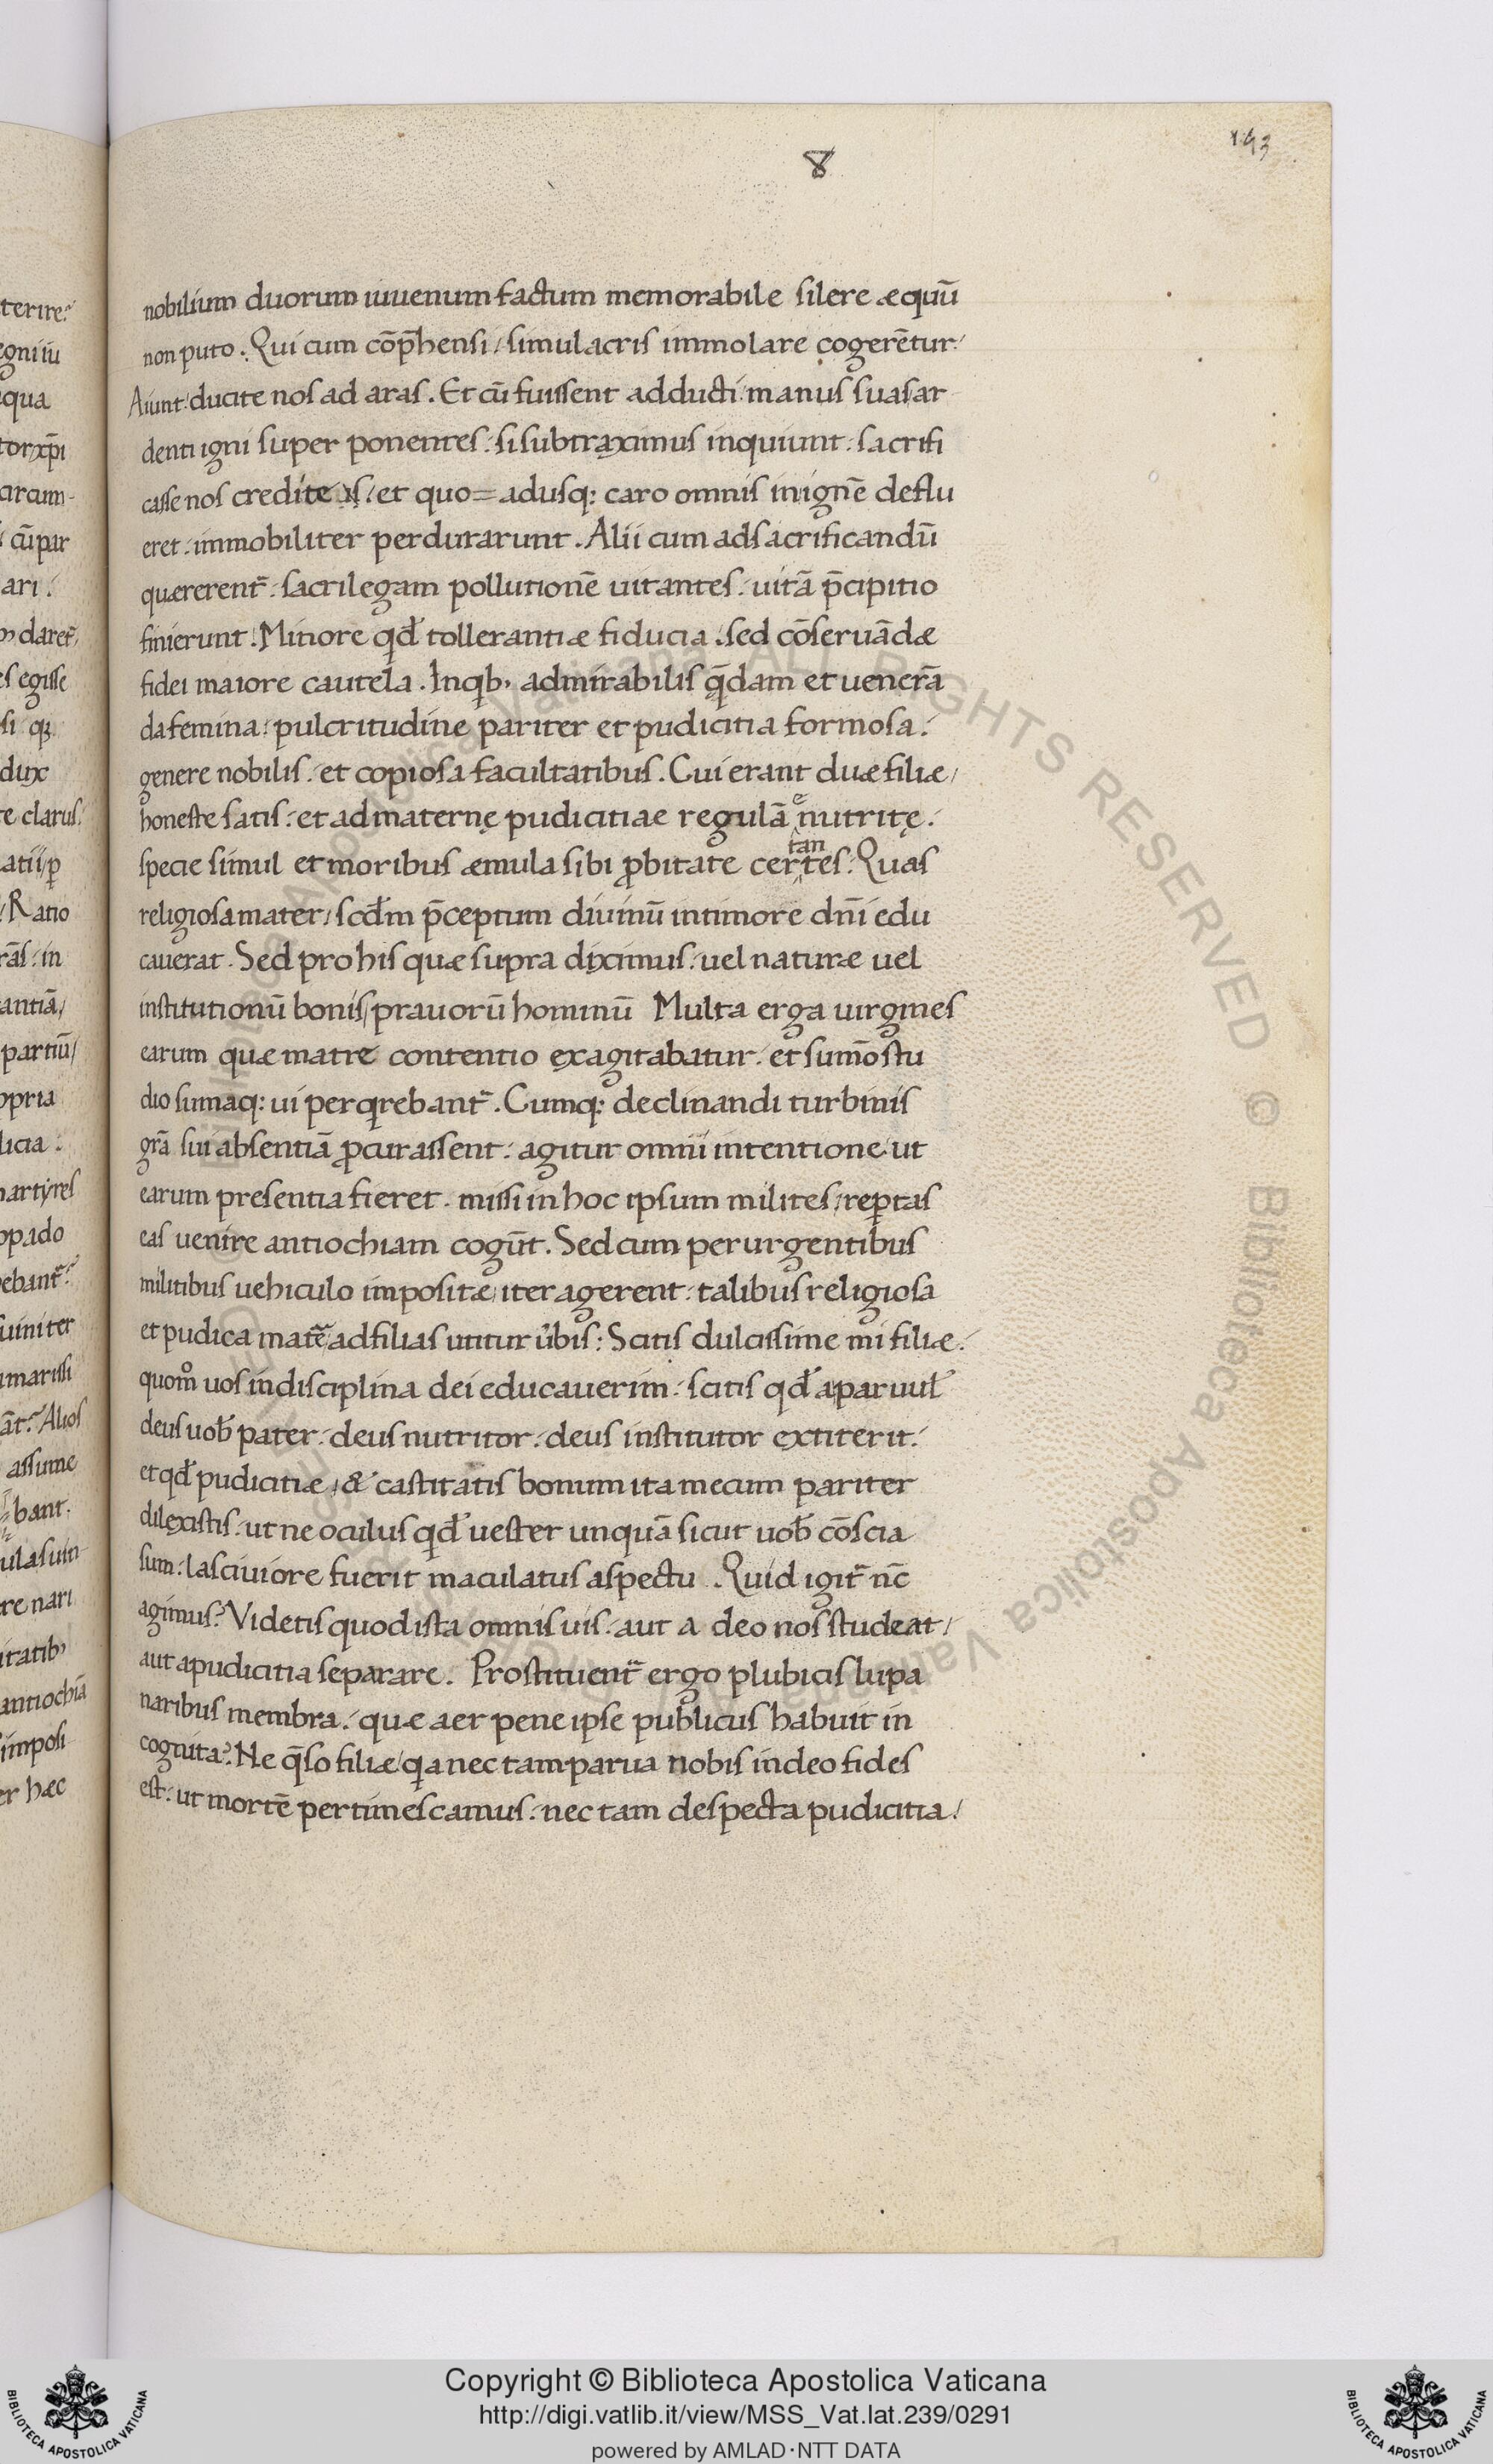 143
8
nobilium duorum iuuenum factum memorabile silere æquū
non puto. Qui cum cōp̄hensi simulacris immolare cogerētur
Aiunt ducite nos ad aras. Et cū fuissent adducti manus suas ar
denti igni super ponentes. si subtraximus inquiunt. sacrifi
casse nos credite. et quo=adusq: caro omnis in ignē deflu
eret. immobiliter perdurarunt. Alii cum ad sacrificandū
quærerent̄. sacrilegam pollutionē uitantes. uitā p̄cipitio
finierunt. Minore qđ tollerantiæ fiducia. sed cōseruādæ
fidei maiore cautela. Inqib, admirabilis q̄dam et uenerā
da femina. pulcritudine pariter et pudicitia formosa.
genere nobilis. et copiosa facultatibus. Cui erant duæ filiæ
honeste satis. et ad maternę pudicitiae regulā enutritę.
specie simul et moribus æmula sibi ꝓbitate certantes. Quas
religiosa mater, scđm p̄ceptum diuinū in timore dn̄i edu
cauerat. Sed pro his quæ supra diximus. uel naturæ uel
institutionū bonis, prauorū hominū Multa erga uirgines
earum quæ matre contentio exagitabatur. et sum̄o stu
dio sumaq: ui perqrebant̄. Cumq: declinandi turbinis
grā sui absentiā ꝓcurassent. agitur omni intentione ut
earum presentia fieret. missi in hoc ipsum milites, reꝑtas
eas uenire antiochiam cogūt. Sed cum perurgentibus
militibus uehiculo impositæ iter agerent. talibus religiosa
et pudica matē ad filias utitur ūbis: Scitis dulcissime mi filiæ.
quom̊ uos in disciplina dei educauerim. scitis qđ a paruul
deus uob pater. deus nutritor. deus institutor extiterit.
et qđ pudicitiæ, & castitatis bonum ita mecum pariter
dilexistis. ut ne oculus qđ uester unquā sicut uob cōscia
sum. lasciuiore fuerit maculatus aspectu. Quid igit̄ nc̄
agimus? Videtis quod ista omnis uis. aut a deo nos studeat,
aut a pudicitia separare. Prostituent̄ ergo plubicis lupa
naribus membra. quæ aer pene ipse publicus habuit in
cognita? Ne q̄so filiæ, qa nec tam parua nobis in deo fides
est. ut mortē pertimescamus. nec tam despecta pudicitia.
Copyright © Biblioteca Apostolica Vaticana
http://digi.vatlib.it/view/MSS_Vat.lat.239/0291
powered by AMLAD·NTT DATA